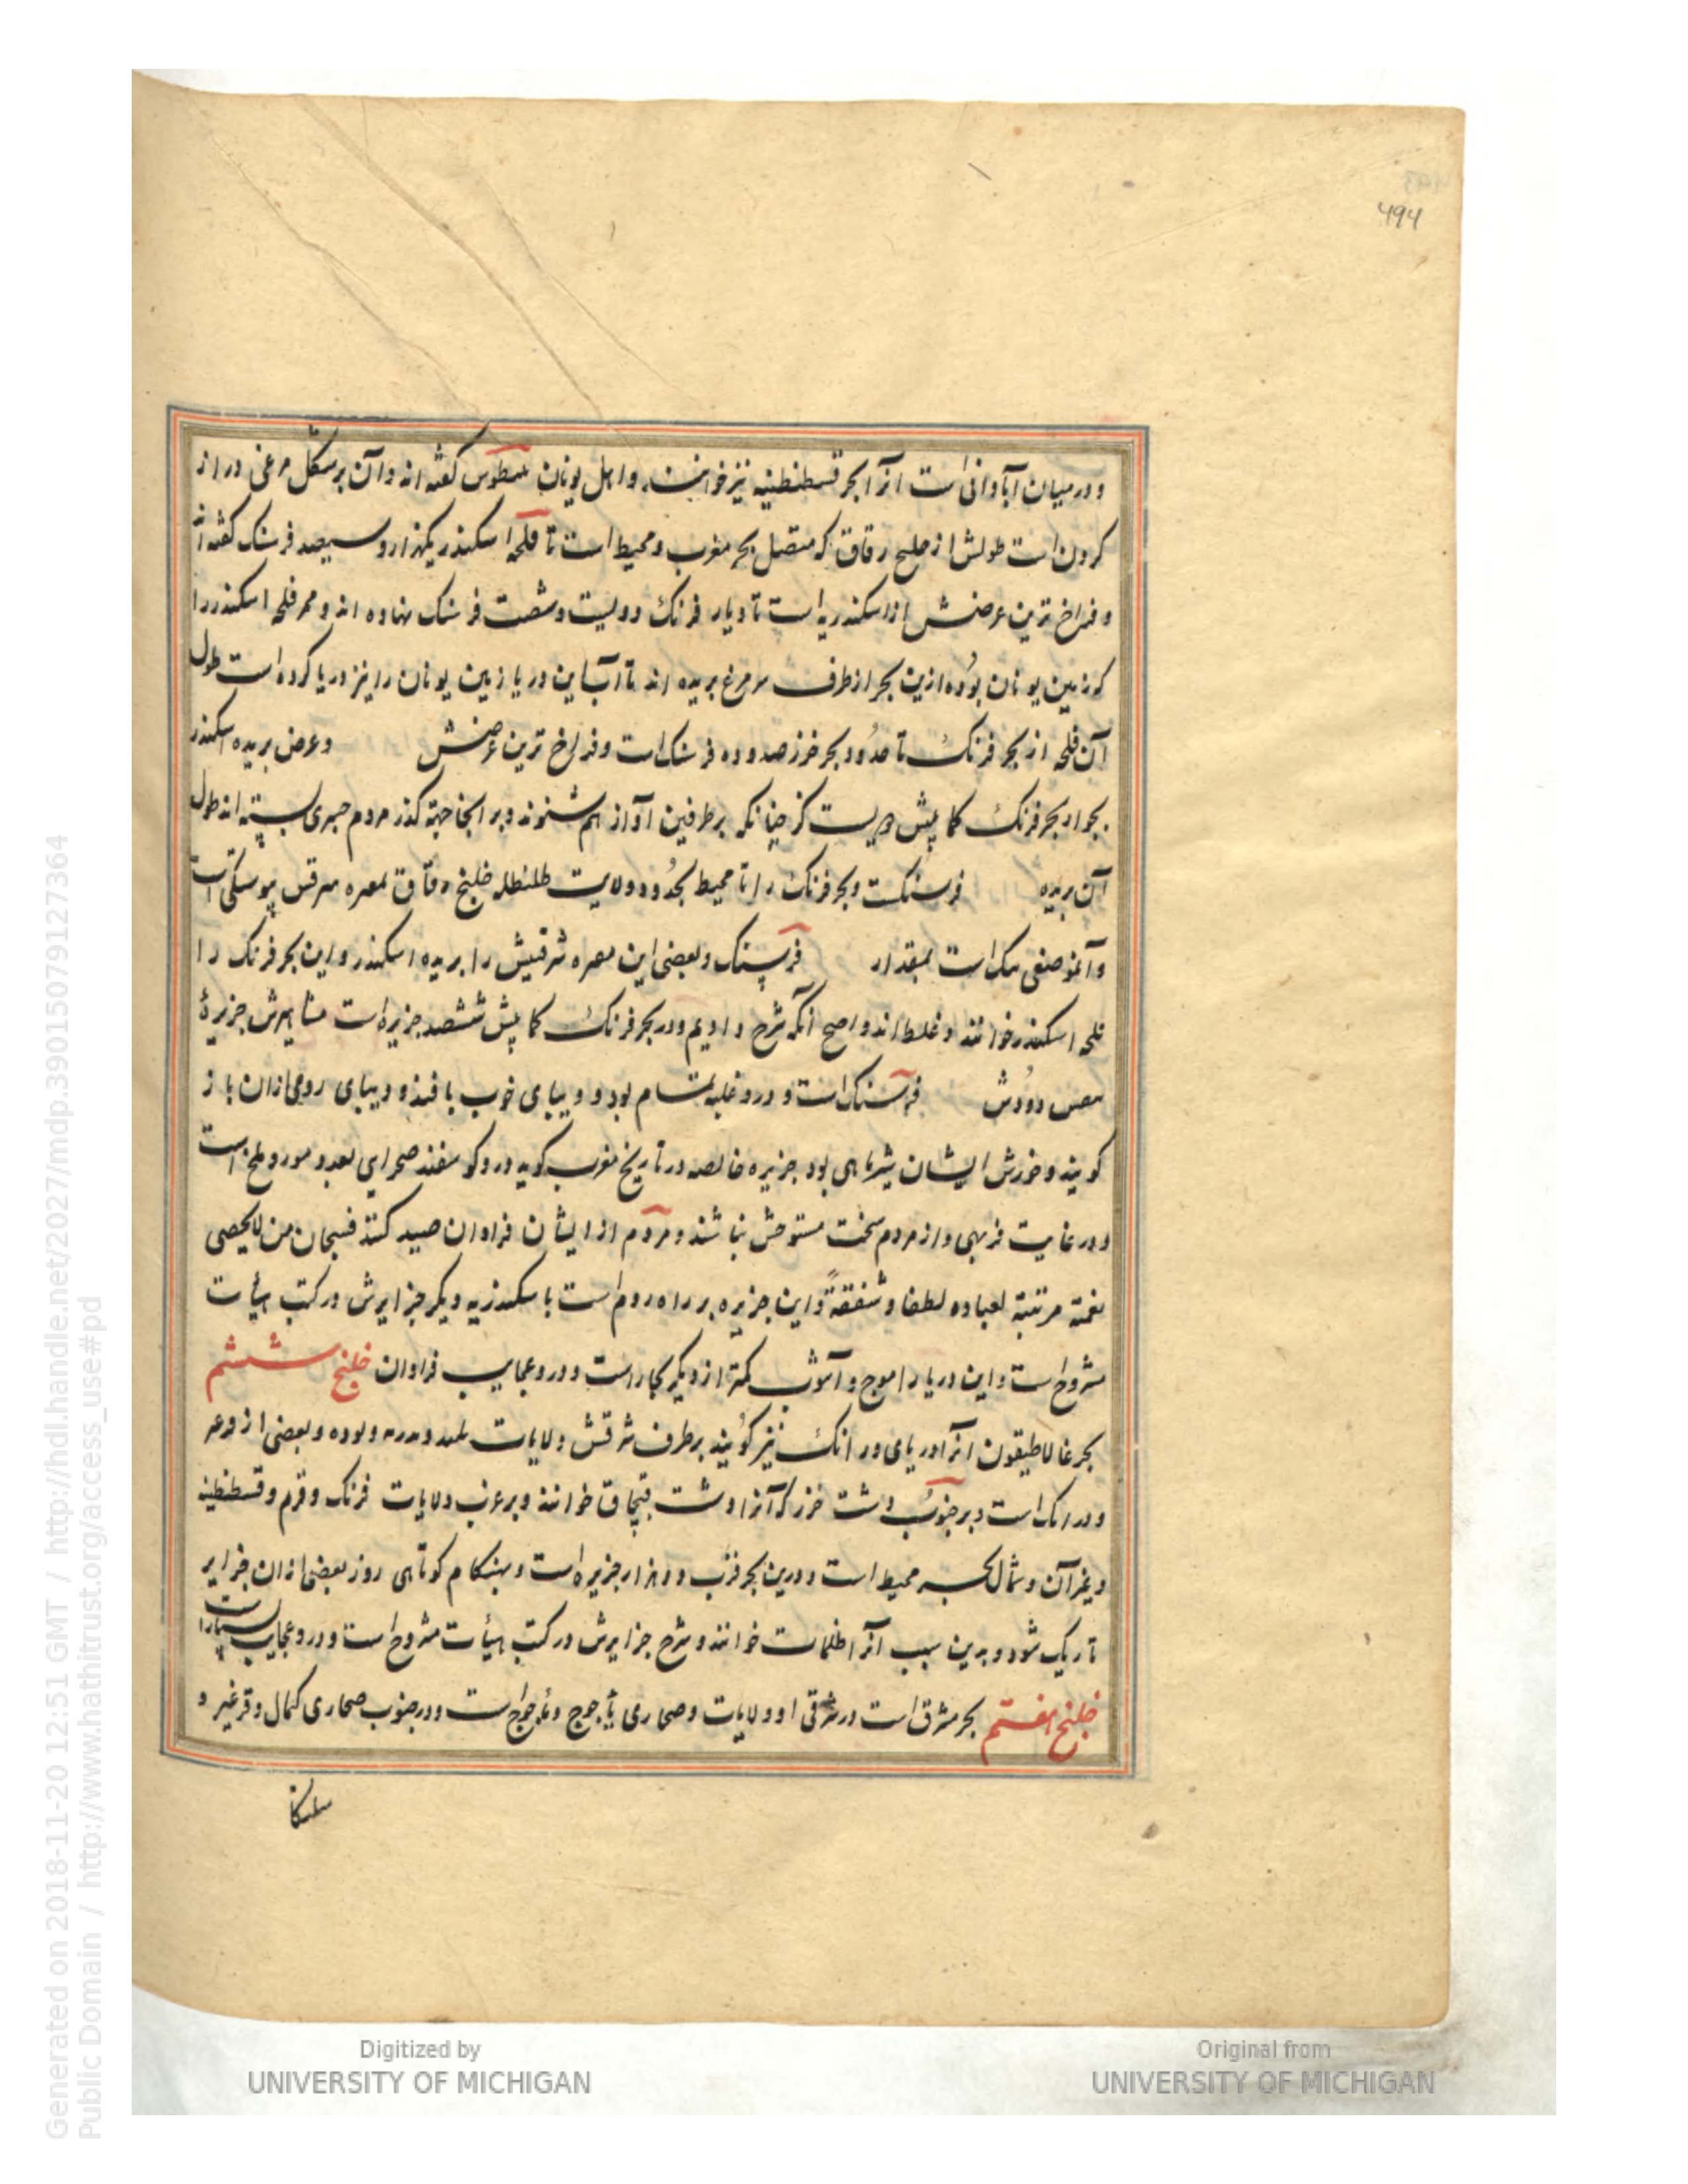 و در میان آبادانی است آنرا بحر قسطنطنیه نیز خوانند و اهل یونان گفته اند و آن بر شکل مرغی دراز
کردن است طولش از خلیج رقاق که متصل بحر مغرب و محیط است تا فلجه اسکندر یکهزار و سیصد فرسنک گفته اند
و فراخ ترین عرضش از اسکندریه است تا دیار فرنک دویست و شصت فرسنک نهاده اند و ممر فلجه اسکندر را
که زمین یونان بوده ازین بحر از طرف سر مرغ بریده اند تا آب این دریا زمین یونان را نیز دریا کرده است طول
آن فلجه از بحر فرنک تا حدود بحر خزر صد و ده فرسنک است و فراخ ترین عرضش و عرض بریده اسکندر
بجوار بحر فرنک کما پیش است کز چنانکه بر طرفین آواز هم شنوند و بر آنجا جهة گذر مردم جسری بسته اند طول
آن بریده فرسنکست و بحر فرنک را تا محیط بحدود ولایت طلنطله خلیج رقاق پیوستکی است
و آن موضعی است بمقدار فرسنک و بعضی این شرقیش را بریده اسکندر و این بحر فرنک را
فلجه اسکندر خوانند و غلط اند و اصح آنکه شرح دادیم و در بحر فرنک کما پیش ششصد جزیره است مشاهیرش جزیرۀ
دورش فرسنک است و درو غلبه تمام بود و دیبای خوب بافند و دیبای رومی ازان باز
کویند و خورش ایشان شیر ماهی بود جزیره خالصه در تاریخ مغرب کوید درو کوسفند صحرای و است
و در غایت فربهی و از مردم سخت مستوحش نباشند و مردم از ایشان فراوان صید کنند فسبحان من لا یحصی
نعمته لعباده لطفا و شفقةً و این جزیره بر راه روم است با سکندریه و دیگر جزایرش در کتب هیأت
مشروح است و این دریا را موج و آشوب کمتر از دیگر بحار است و درو عجایب فراوان خلیج ششم
بحر غالاطیقون آنرا دریای ورانک نیز کویند بر طرف شرقش ولایات و بعضی از
و ورانک است و بر جنوب دشت خزر که آنرا دشت قبچاق خوانند و بر غرب ولایات فرنک و قرم و قسطنطنیه
و غیر آن و شمال بحر محیط است و درین بحر قرب دو هزار جزیره است و بهنکام کوتاهی روز بعضی ازان جزایر
تاریک شود و بدین سبب آنرا ظلمات خوانند و شرح جزایرش در کتب هیأت مشروح است و درو عجایب بسیار است
خلیج هفتم بحر مشرق است در شرقی او ولایات و صحاری یأجوج و مأجوج است و در جنوب صحاری کمال و قرغیز و
Digitized by
UNIVERSITY OF MICHIGAN
Original from
UNIVERSITY OF MICHIGAN
Generated on 2018-11-20 12:51 GMT / http://hdl.handle.net/2027/mdp.39015079127364
Public Domain / http://www.hathitrust.org/access_use#pd